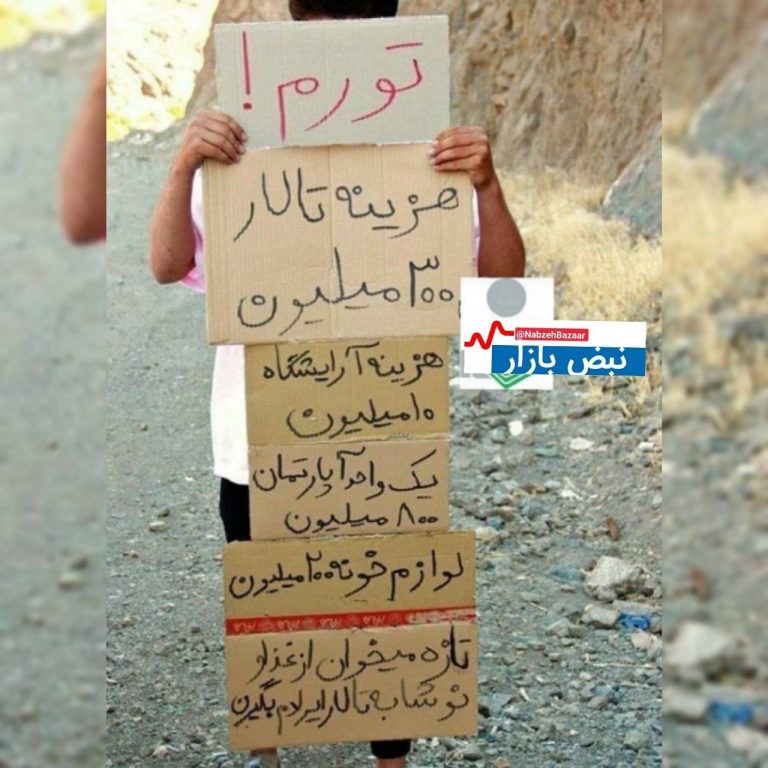 تورم!
هزینه تالار
۳۰۰ میلیون
@NabzehBazaar
نبض بازار
هزینه آرایشگاه
۱۰ میلیون
یک واحد آپارتمان
۸۰۰ میلیون
لوازم خونه ۲۰۰ میلیون
تازه میخوان از غذا و
نوشابه تالار ایرادم بگیرن